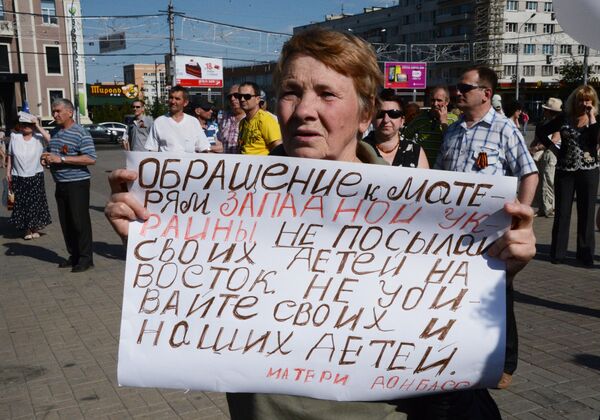 Тироль
ОБРАЩЕНИЕ К МАТЕ-
РЯМ ЗАПАДНОЙ УК
РАИНЫ НЕ ПОСЫЛАЙ
СВОИХ ДЕТЕЙ НА
ВОСТОК НЕ УБИ-
ВАЙТЕ СВОИХ И
НАШИХ ДЕТЕЙ.
МАТЕРИ ДОНБАСС